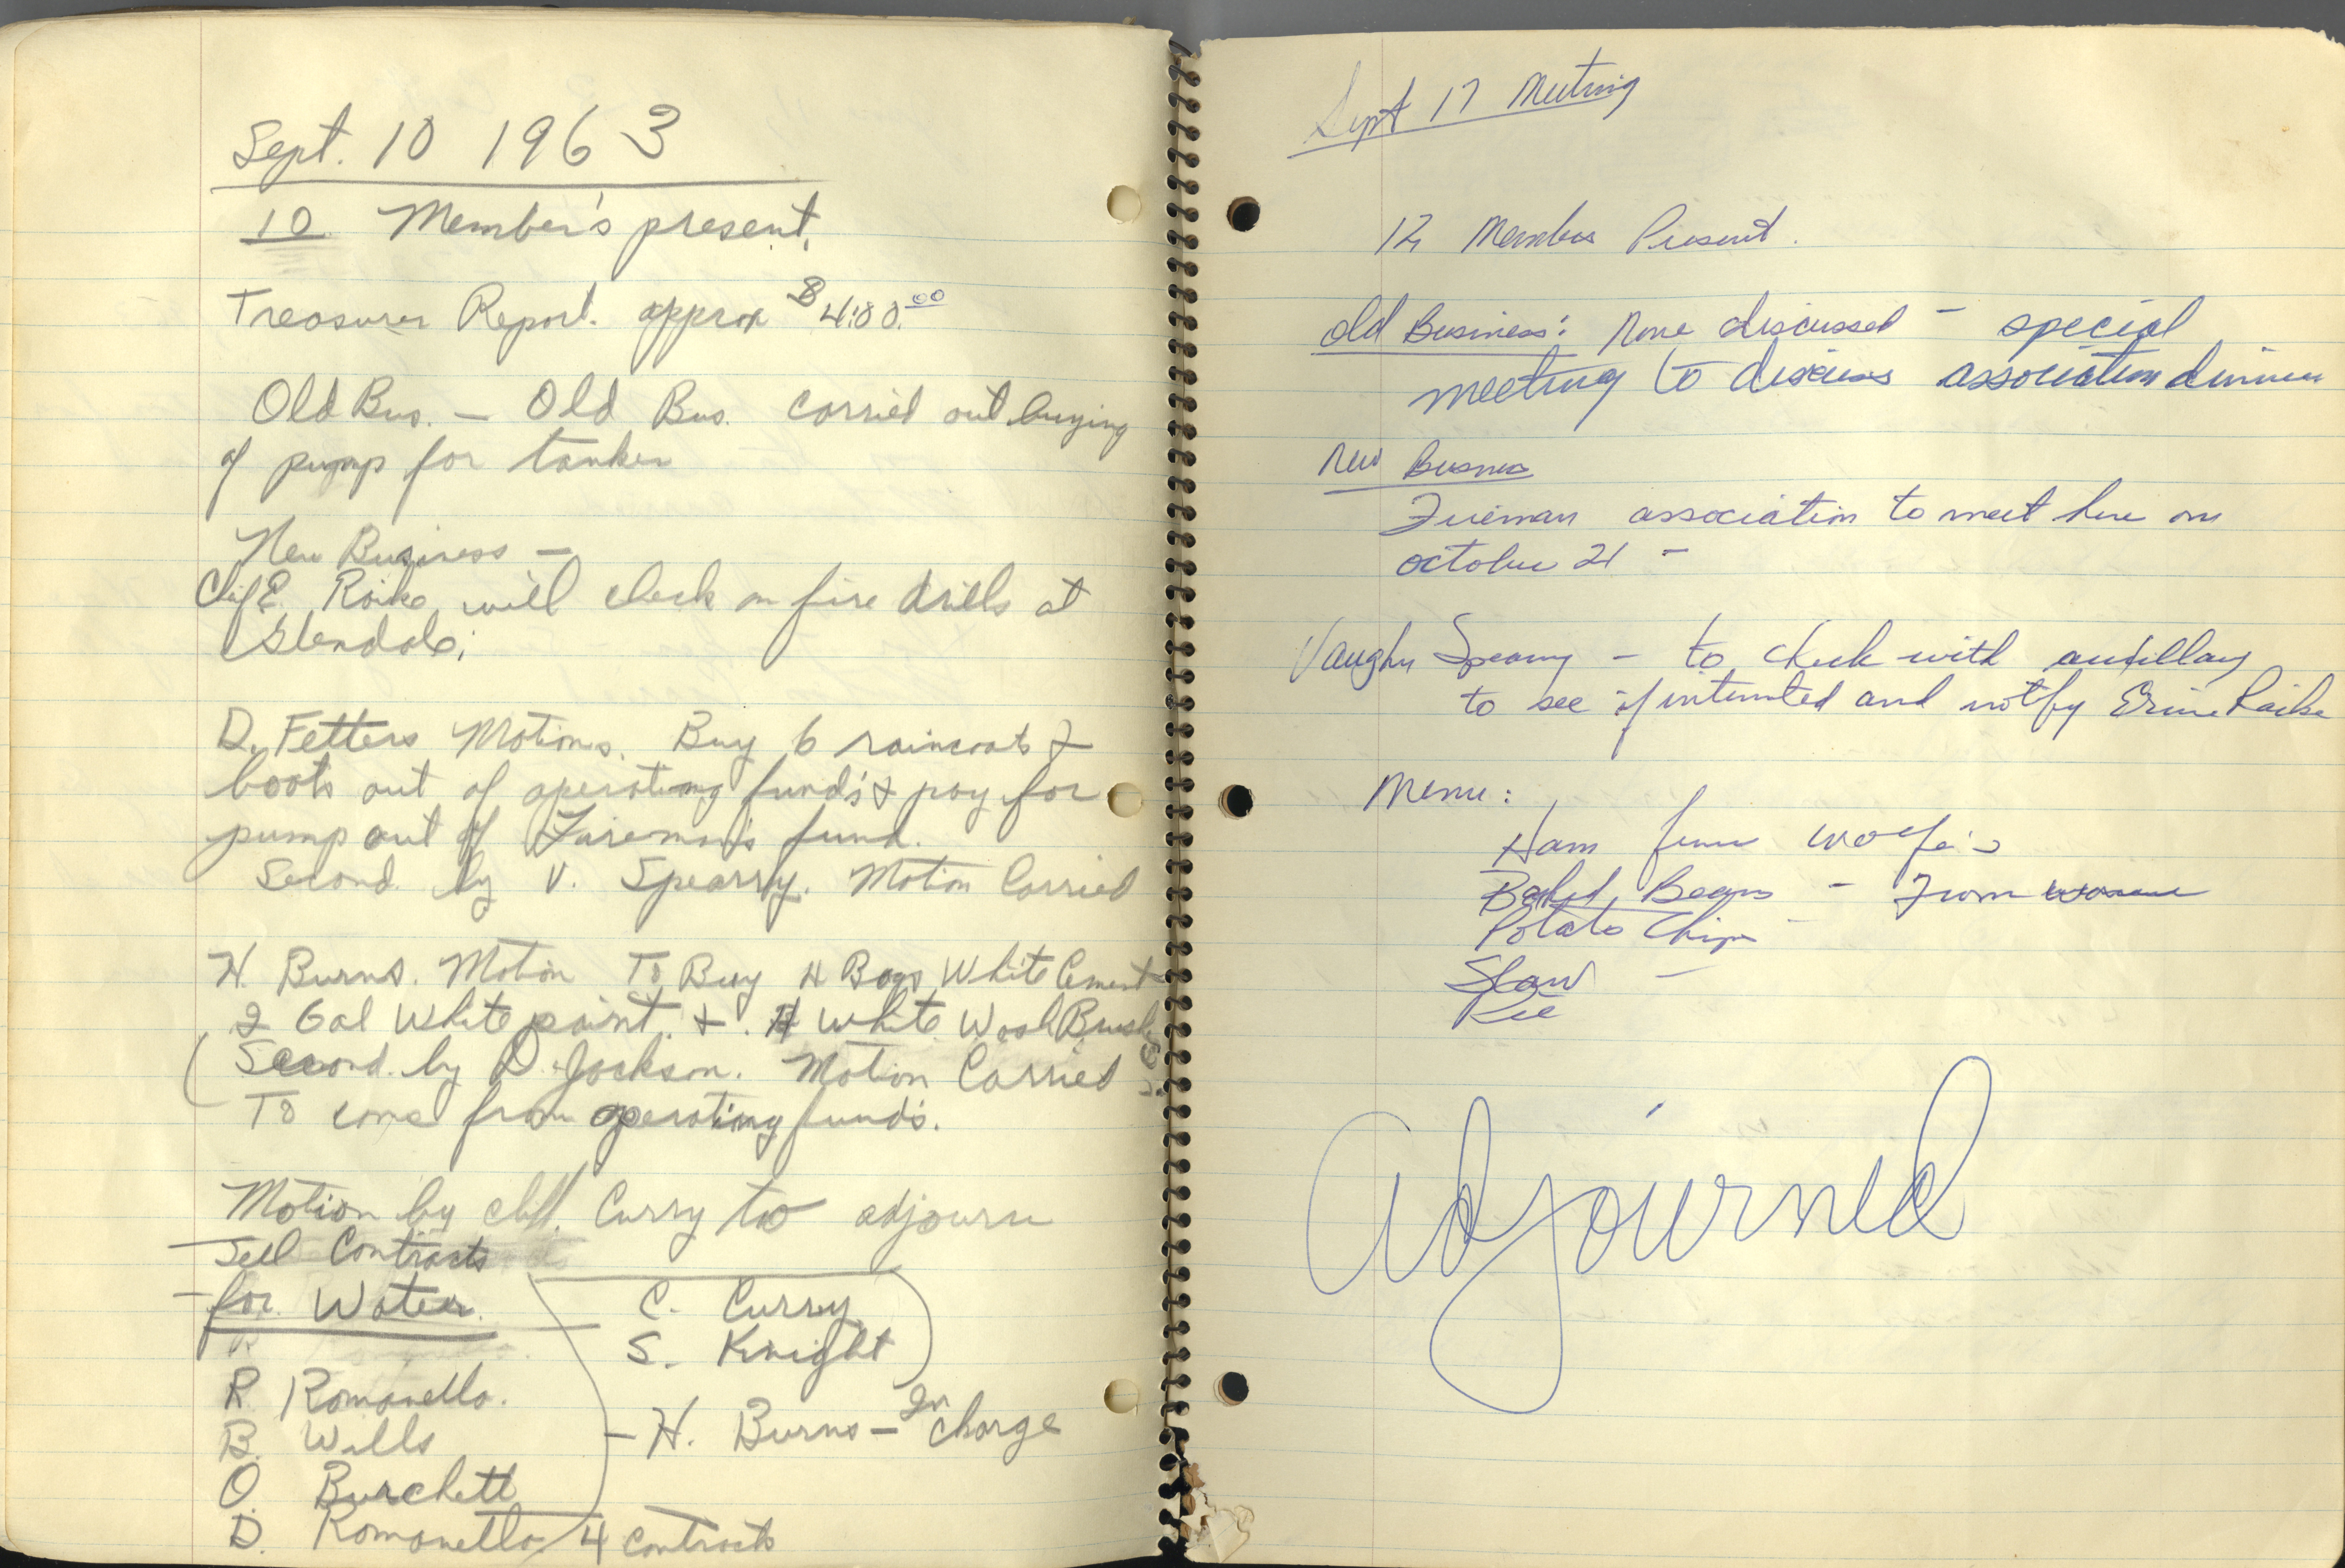 Sept. 10 1963
10 Member's present.
Treasurer Report. approx $400.00
Old Bus. — Old Bus. carried out buying
of pump for tanker
New Business —
Chif E. Raike will check on fire drills at
Glendale.
D. Fetters Motions. Buy 6 raincoats &
boots out of operating fund's & pay for
pump out of Fireman's fund.
Second by V. Spearry. Motion Carried
H. Burns. Motion To Buy 4 Bags White Cement
2 Gal White paint, & 4 White Wash Brush
(Second by D. Jackson. Motion Carried
To come from operating fund's.
Motion by Cliff. Curry to adjourn
Sell Contracts
for Water.
C. Curry
S. Knight
R. Romanello.
B. Wills
H. Burns — In charge
O. Burchett
D. Romanello 4 contracts
Sept 17 Meeting
12 Members Present.
Old Business: None discussed — special
meeting to discuss association dinner
New Busness
Fireman association to meet here on
october 21 —
Vaughn Spearry — to check with auxillary
to see if intersted and notfy Ernie Raike
Menu:
Ham from Wolfe's
Baked Beans — From
Potato Chips —
Slaw —
Pie
Adjourned